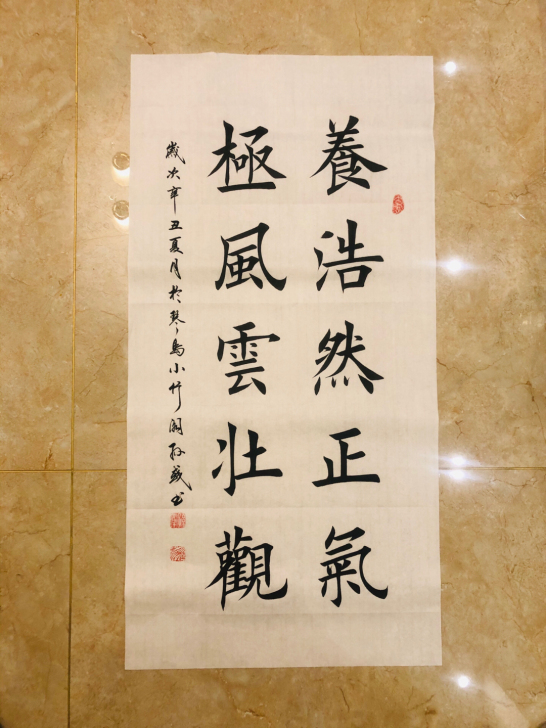 養浩然正氣
極風雲壯觀
歲次辛丑夏月於琴島小竹園孫盛書